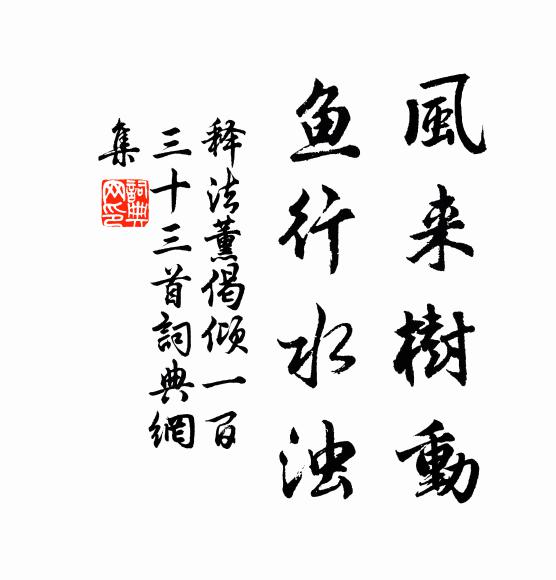 風来樹動
鱼行水浊
释法薰偈颂一百
三十三首詞典網
集
詞典
网印